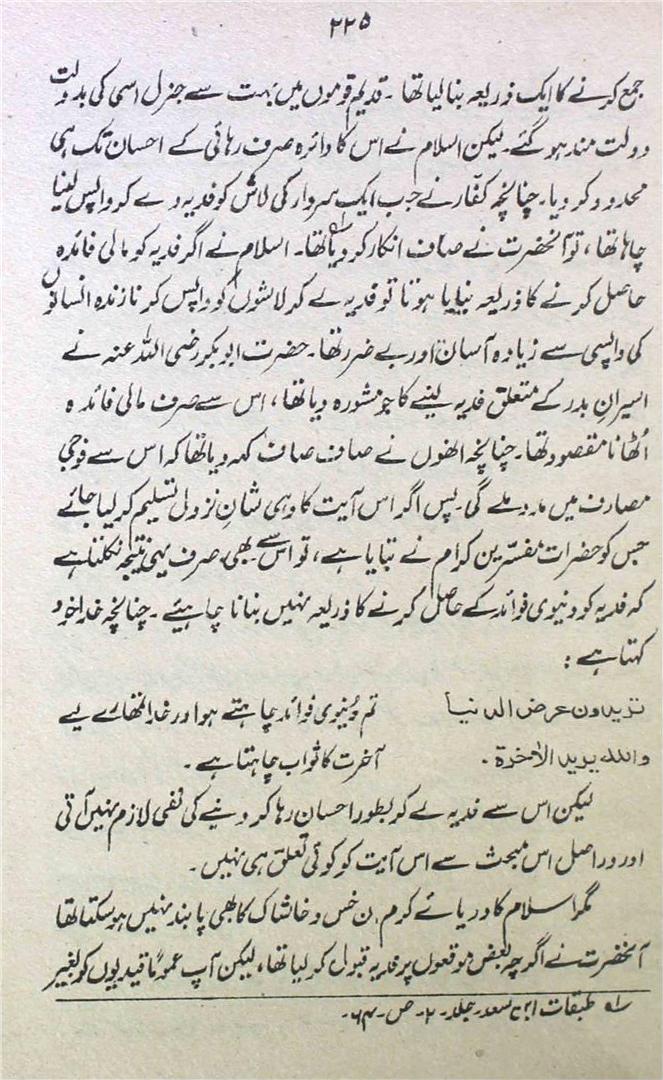 ۲۲۵
جمع کرنے کا ایک ذریعہ بنا لیا تھا ۔ قدیم قوموں میں بہت سے جنرل اسی کی بدولت
دولت مند ہو گئے۔ لیکن اسلام نے اس کا دائرہ صرف رہائی کے احسان تک ہی
محدود کر دیا۔ چنانچہ کفّار نے جب ایک سردار کی لاش کو فدیہ دے کر واپس لینا
چاہا تھا ، تو آنحضرت نے صاف انکار کر دیا تھا۔ اسلام نے اگر فدیہ کو مالی فائدہ
حاصل کرنے کا ذریعہ بنایا ہوتا تو فدیہ لے کر لاشوں کو واپس کرنا زندہ انسانوں
کی واپسی سے زیادہ آسان اور بے ضرر تھا۔ حضرت ابوبکر رضی اللہ عنہ نے
اسیرانِ بدر کے متعلق فدیہ لینے کا جو مشورہ دیا تھا ، اس سے صرف مالی فائدہ
اُٹھانا مقصود تھا۔ چنانچہ انھوں نے صاف صاف کہہ دیا تھا کہ اس سے فوجی
مصارف میں مدد ملے گی۔ پس اگر اس آیت کا وہی شانِ نزول تسلیم کر لیا جائے
جس کو حضرات مفسّرین کرام نے بتایا ہے ، تو اس سے بھی صرف یہی نتیجہ نکلتا ہے
کہ فدیہ کو دنیوی فوائد کے حاصل کرنے کا ذریعہ نہیں بنانا چاہیئے ۔ چنانچہ خدا خود
کہتا ہے :
تریدون عرض الدنیا تم دُنیوی فوائد چاہتے ہو اور خدا تمھارے لیے
واللہ یرید الاٰخرة ۔ آخرت کا ثواب چاہتا ہے ۔
لیکن اس سے فدیہ لے کر بطور احسان رہا کر دینے کی نفی لازم نہیں آتی
اور دراصل اس مبحث سے اس آیت کو کوئی تعلق ہی نہیں ۔
مگر اسلام کا دریائے کرم ان خس و خاشاک کا بھی پابند نہیں ہو سکتا تھا
آنحضرت نے اگرچہ بعض موقعوں پر فدیہ قبول کر لیا تھا ، لیکن آپ عموماً قیدیوں کو بغیر
لہ طبقات ابن سعد۔ جلد۔ ۲۔ ص۔ ۶۴۔